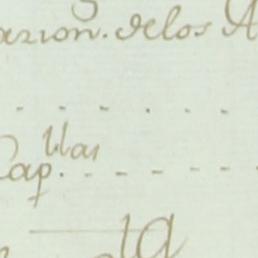 azion. de los A
Cap.llas
ta